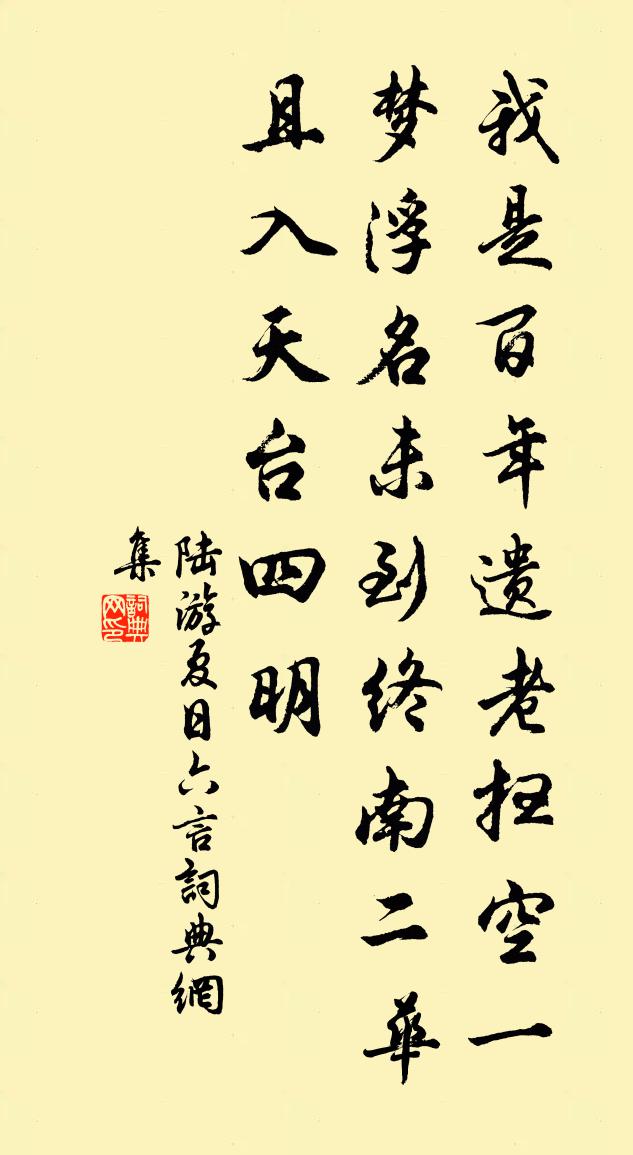 我是百年遗老枉空一
梦浮名未到终南二華
且入天台四明
陆游夏日六言詞典網
集
詞典
网印